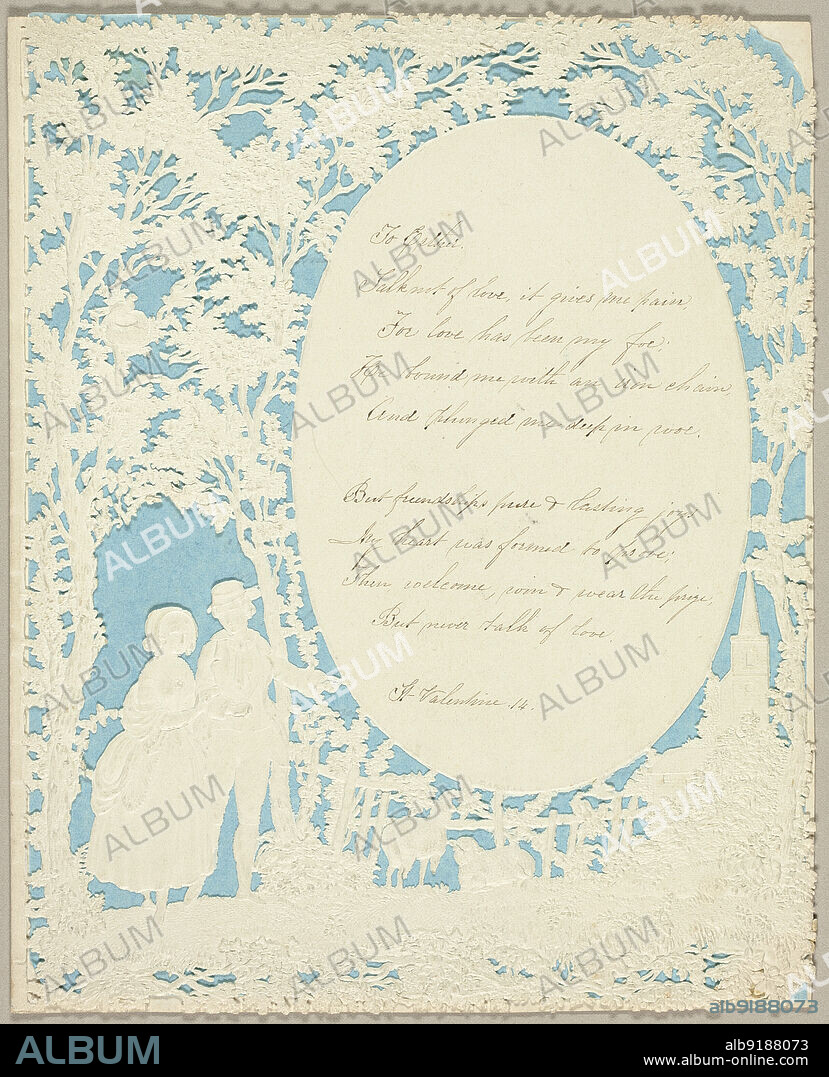 To Esther.
Talk not of love, it gives me pain
For love has been my foe;
He bound me with an iron chain
And plunged me deep in woe.
But friendship's pure & lasting joys
My heart was formed to prove;
Then welcome, win & wear the prize,
But never talk of love.
St Valentine 14.
alb9188073
ALBUM
alb9188073
www.album-online.com